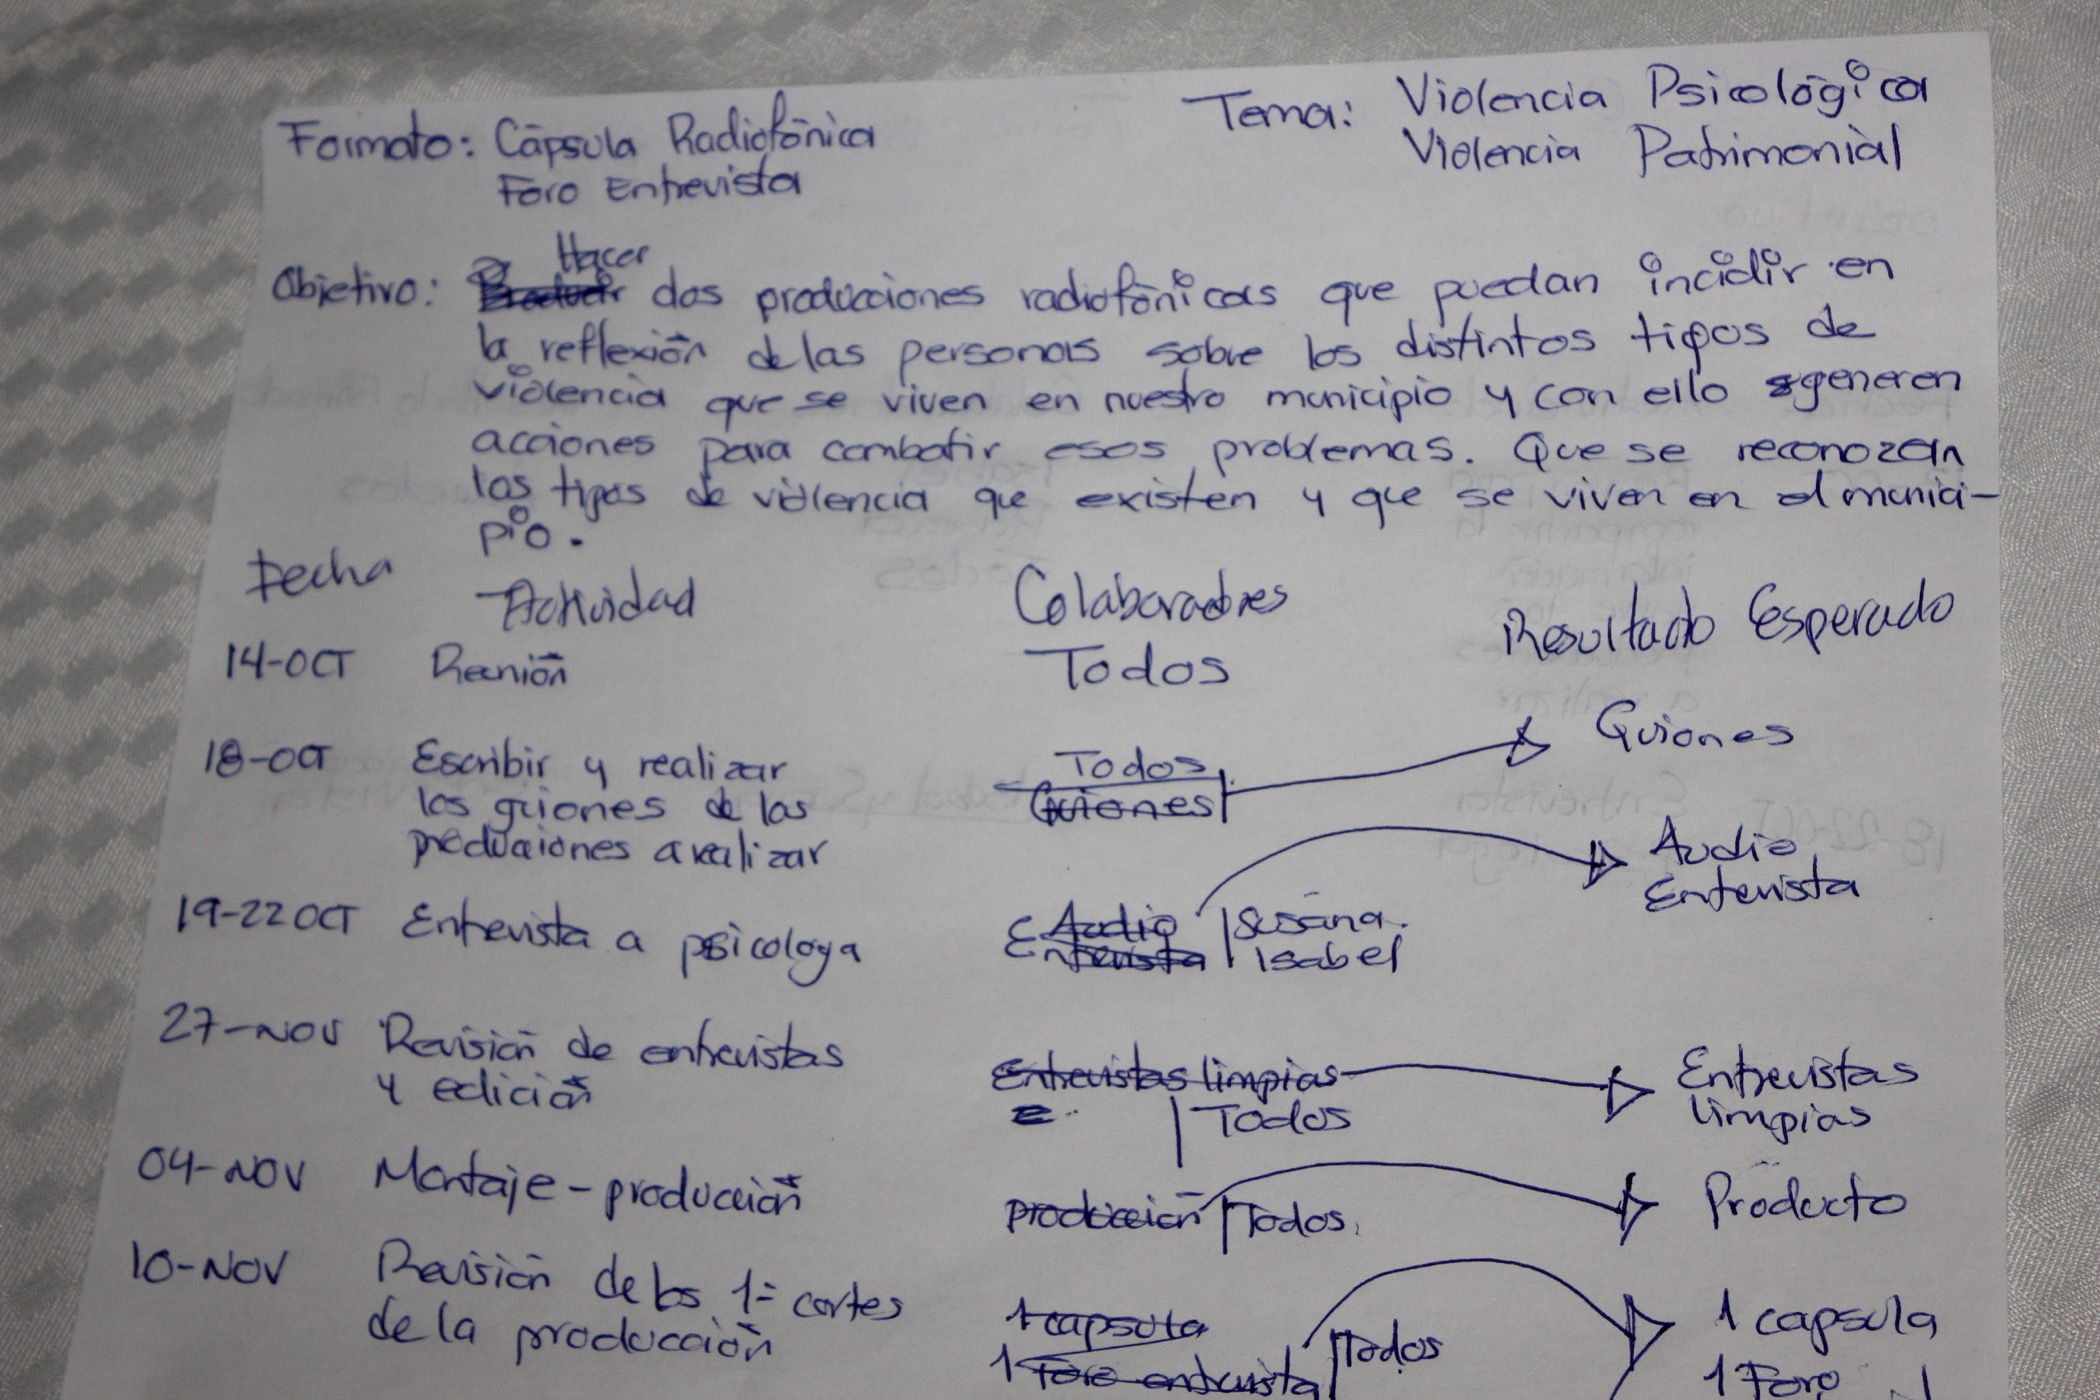 Formato: Cápsula Radiofónica
Foro Entrevista
Tema: Violencia Psicológica
Violencia Patrimonial
Hacer
Objetivo: Producir dos producciones radiofónicas que puedan incidir en
la reflexión de las personas sobre los distintos tipos de
violencia que se viven en nuestro municipio y con ello generen
acciones para combatir esos problemas. Que se reconozcan
los tipos de violencia que existen y que se viven en el munici-
pio.
Fecha Actividad Colaboradores Resultado Esperado
14-OCT Reunión Todos
18-OCT Escribir y realizar Todos Guiones
los guiones de las Guiones
producciones a realizar
19-22 OCT Entrevista a psicologa Audio Susana. Audio
Entrevista Isabel Entevista
27-NOV Revisión de entrevistas Entrevistas limpias Entrevistas
y edición Todos limpias
04-NOV Montaje-producción producción Todos. Producto
10-NOV Revisión de los 1= cortes 1 capsula 1 capsula
de la producción 1 Foro entrevista Todos 1 Foro